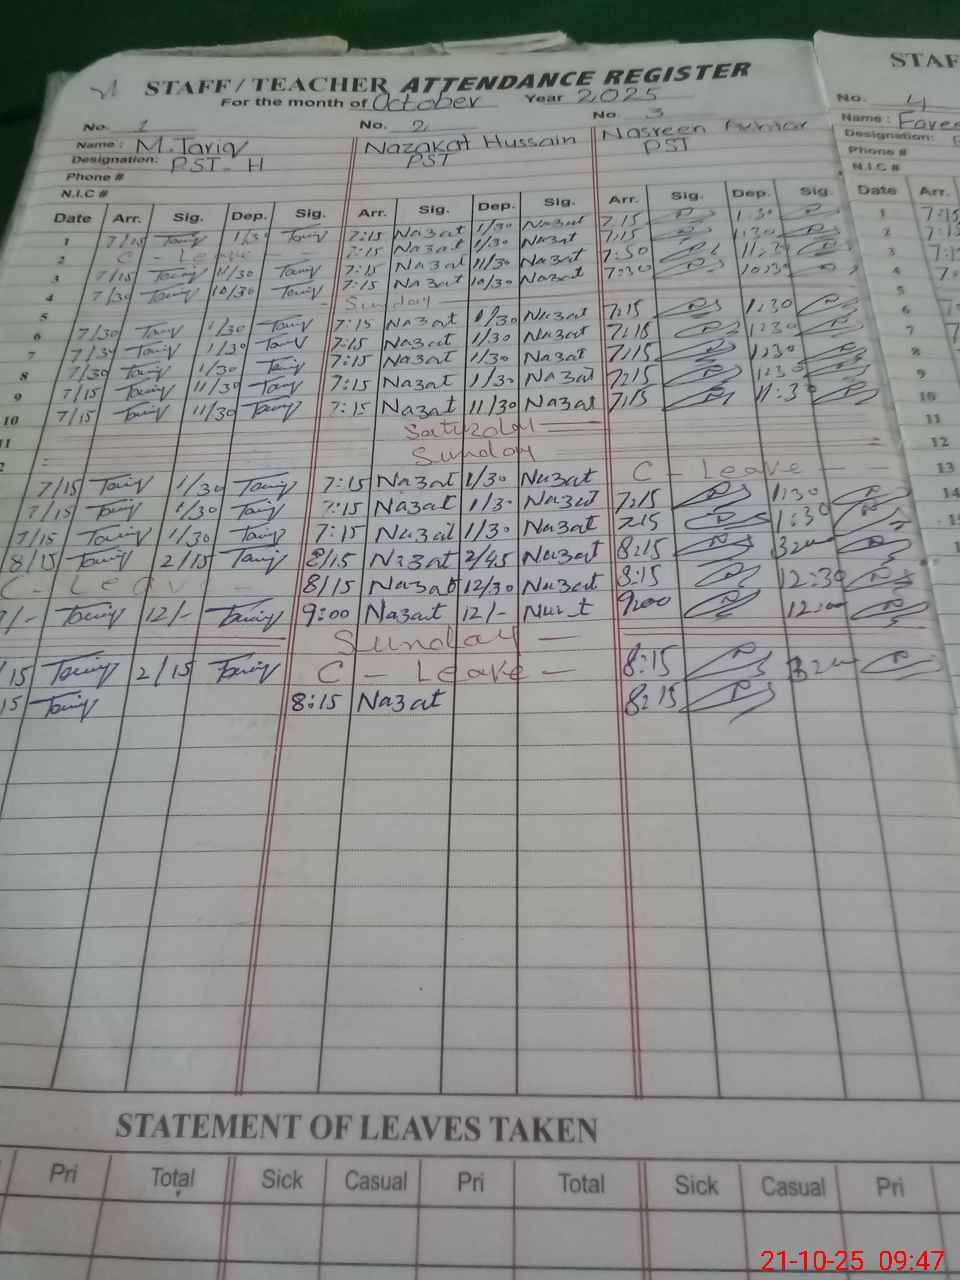 STAFF/TEACHER ATTENDANCE REGISTER STAF
For the month of October Year 2025
No. 1 No. 2 No. 3 No. 4
Name: M.Tariq Nazakat Hussain Nasreen Akhtar Name:
Designation: PST-H PST PST Designation:
Phone # Phone #
N.I.C # N.I.C #
Date Arr. Sig. Dep. Sig. Arr. Sig. Dep. Sig. Arr. Sig. Dep. Sig. Date Arr.
1 7/15 Tariq 1/30 Tariq 7:15 Nazat 1/30 Nazat 7:15 1:30 1 7:15
2 C - Leave - 7:15 Nazat 1/30 Nazat 7:15 1:30 2
3 7/15 Tariq 11/30 Tariq 7:15 Nazat 11/30 Nazat 7:30 11:30 3
4 7/30 Tariq 10/30 Tariq 7:15 Nazat 10/30 Nazat 7:30 10:30 4
5 Sunday 5
6 7/30 Tariq 1/30 Tariq 7:15 Nazat 1/30 Nazat 7:15 1:30 6
7 7/30 Tariq 1/30 Tariq 7:15 Nazat 1/30 Nazat 7:15 1:30 7
8 7/30 Tariq 1/30 Tariq 7:15 Nazat 1/30 Nazat 7:15 1:30 8
9 7/15 Tariq 11/30 Tariq 7:15 Nazat 1/30 Nazat 7:15 1:30 9
10 7/15 Tariq 11/30 Tariq 7:15 Nazat 11/30 Nazat 7:15 11:30 10
11 Saturday 11
Sunday 12
7/15 Tariq 1/30 Tariq 7:15 Nazat 1/30 Nazat C - Leave - 13
7/15 Tariq 1/30 Tariq 7:15 Nazat 1/30 Nazat 7:15 1:30 14
7/15 Tariq 1/30 Tariq 7:15 Nazat 1/30 Nazat 7:15 1:30
8/15 Tariq 2/15 Tariq 8/15 Nazat 2/45 Nazat 8:15
C - Leav - 8/15 Nazat 12/30 Nazat 8:15 12:30
Tariq 12/- Tariq 9:00 Nazat 12/- 9:00 12:00
Sunday -
Tariq 2/15 Tariq C - Leave - 8:15
Tariq 8:15 Nazat 8:15
STATEMENT OF LEAVES TAKEN
Pri Total Sick Casual Pri Total Sick Casual Pri
21-10-25 09:47